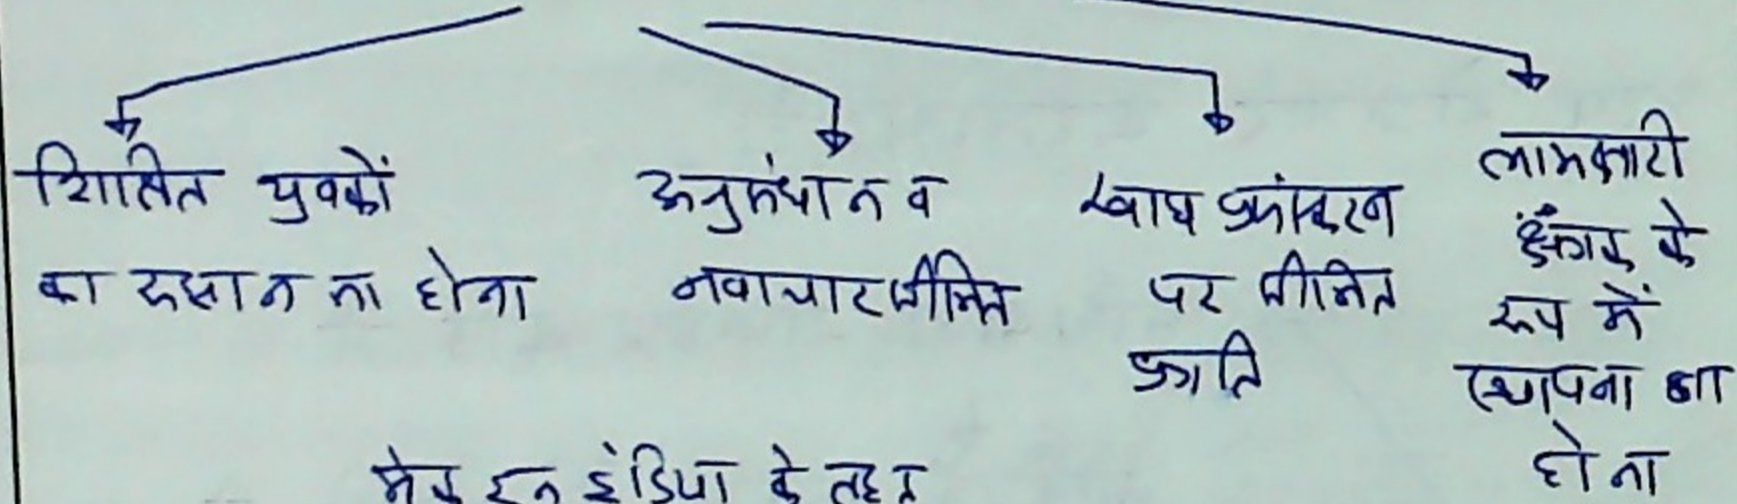 शिक्षित युवकों
का रुझान ना होना
अनुसंधान व
नवाचार सीमित
खाद्य प्रसंस्करण
पर सीमित
क्रांति
लाभकारी
के
रूप में
स्थापना ना
होना
मेक इन इंडिया के तहत